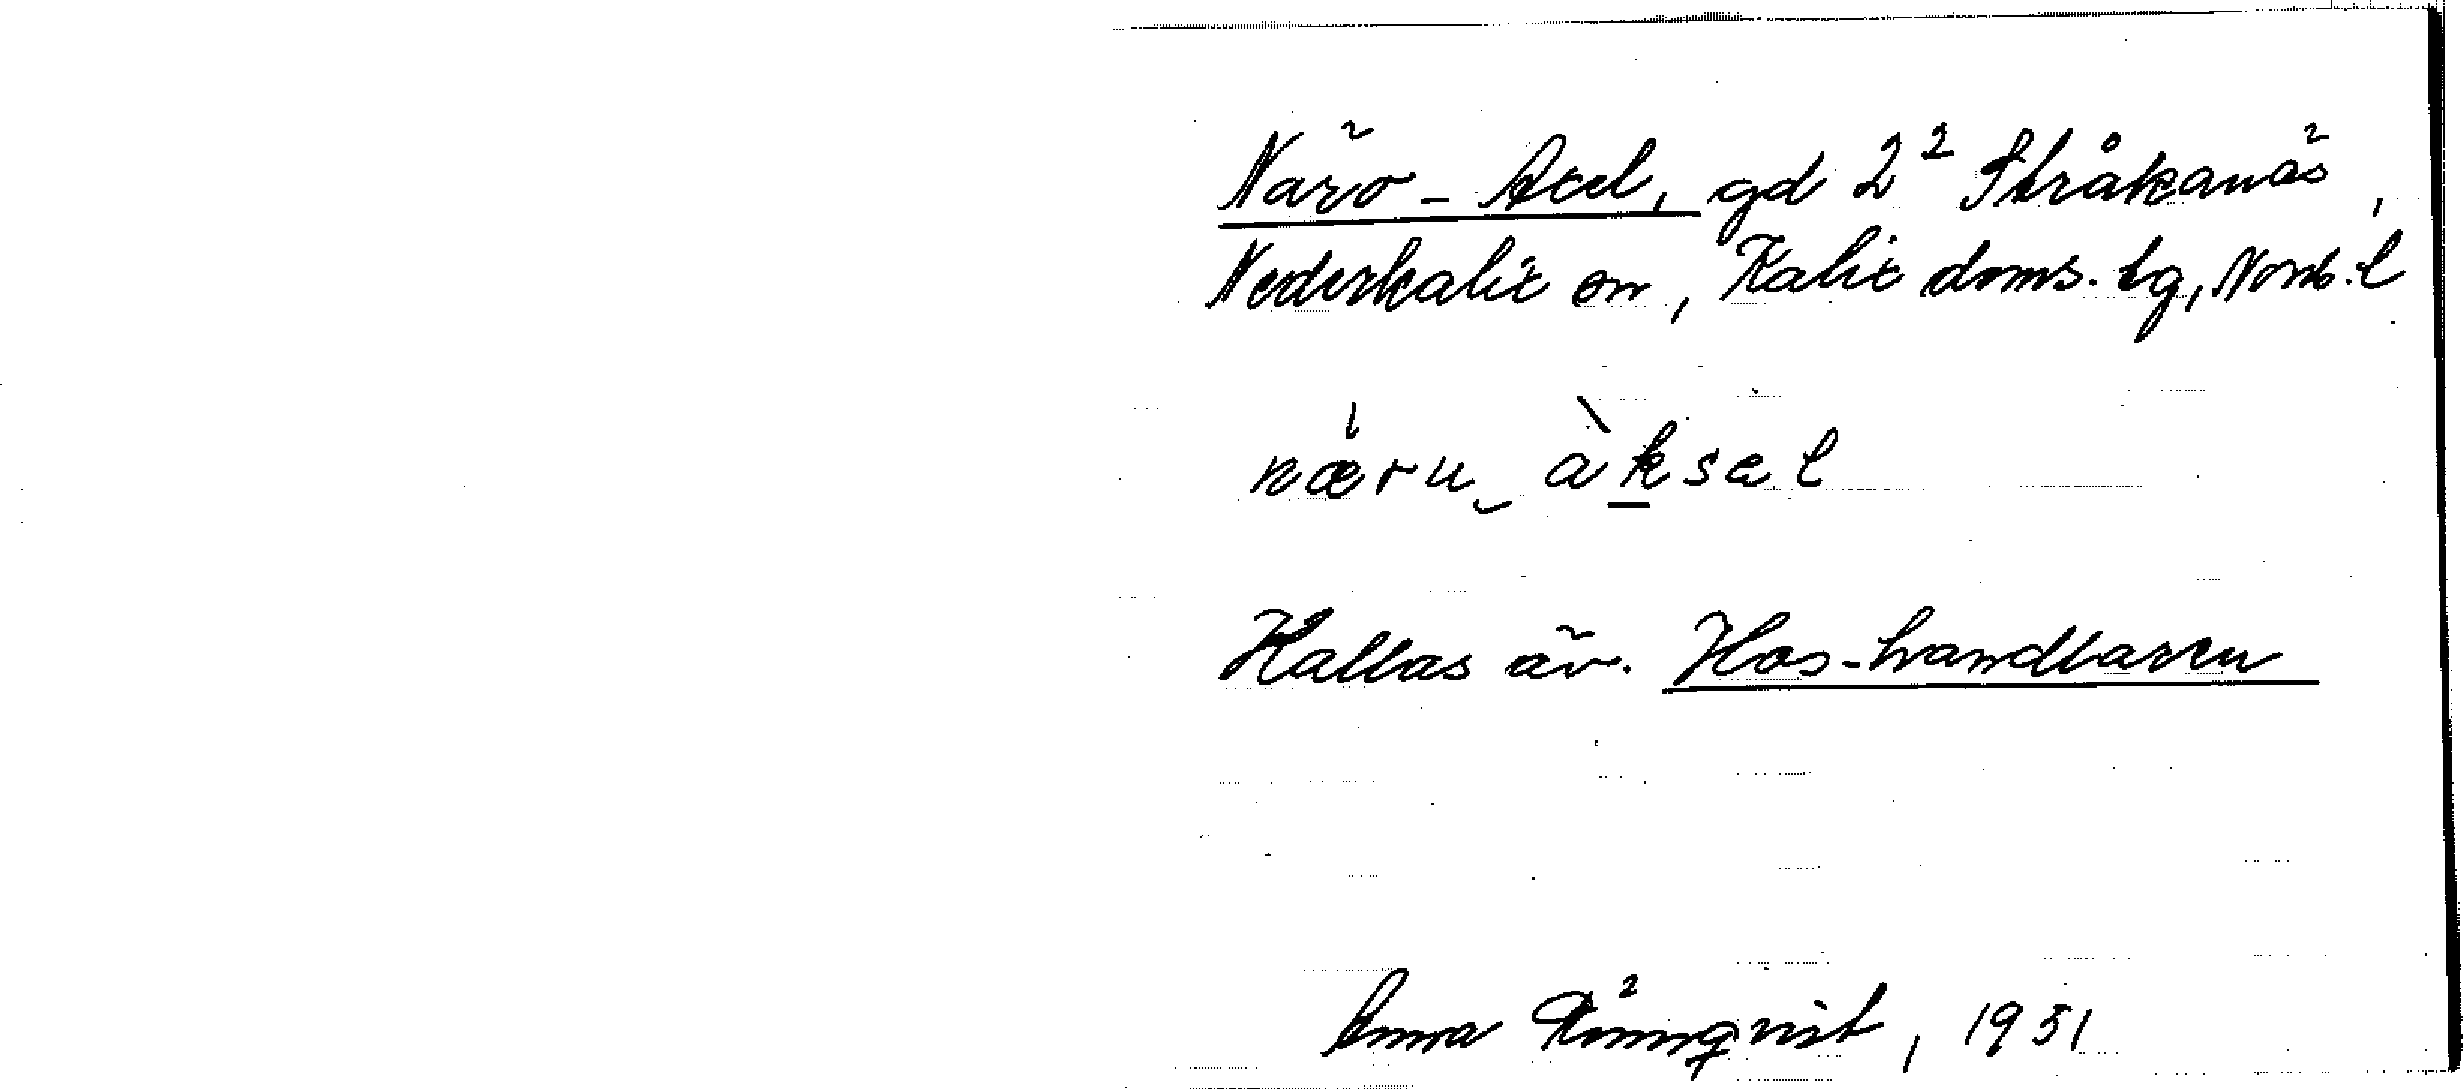 Närv-Axel, gd 2² Stråkanäs,
Nederkalix sn, Kalix doms.lg, Norrb.l
næru‿àksəl
Kallas äv. Hos-handlaren
Anna Rönnqvist, 1931